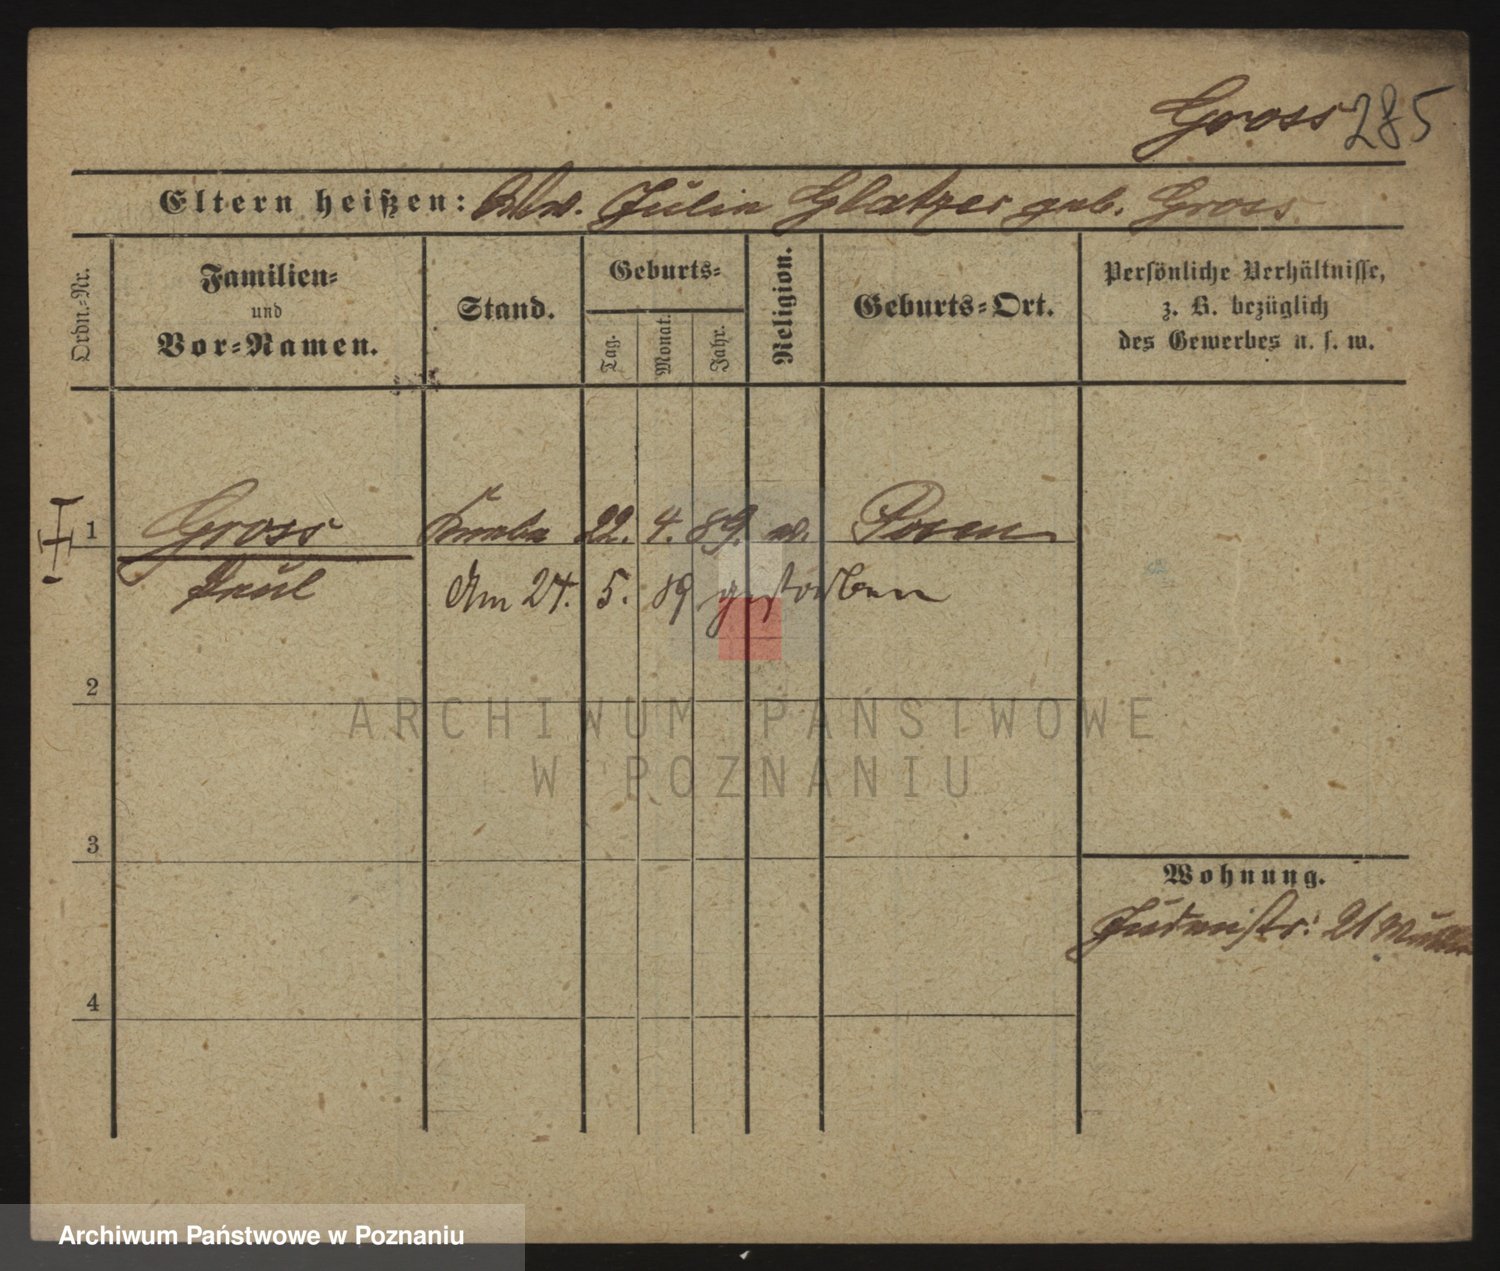 Gross 285
Eltern heißen: Wwe. Julie Glatzer geb. Gross
Ordn.-Nr.
Familien-
und
Vor-Namen.
Stand.
Geburts-
Tag.
Monat.
Jahr.
Religion.
Geburts-Ort.
Persönliche Verhältnisse,
z. B. bezüglich
des Gewerbes u. s. w.
1 Gross Knabe 22. 4. 89. m. Posen
Paul Am 24. 5. 89 gestorben
2
ARCHIWUM PAŃSTWOWE
W POZNANIU
3
Wohnung.
Judenstr. 21
4
Archiwum Państwowe w Poznaniu